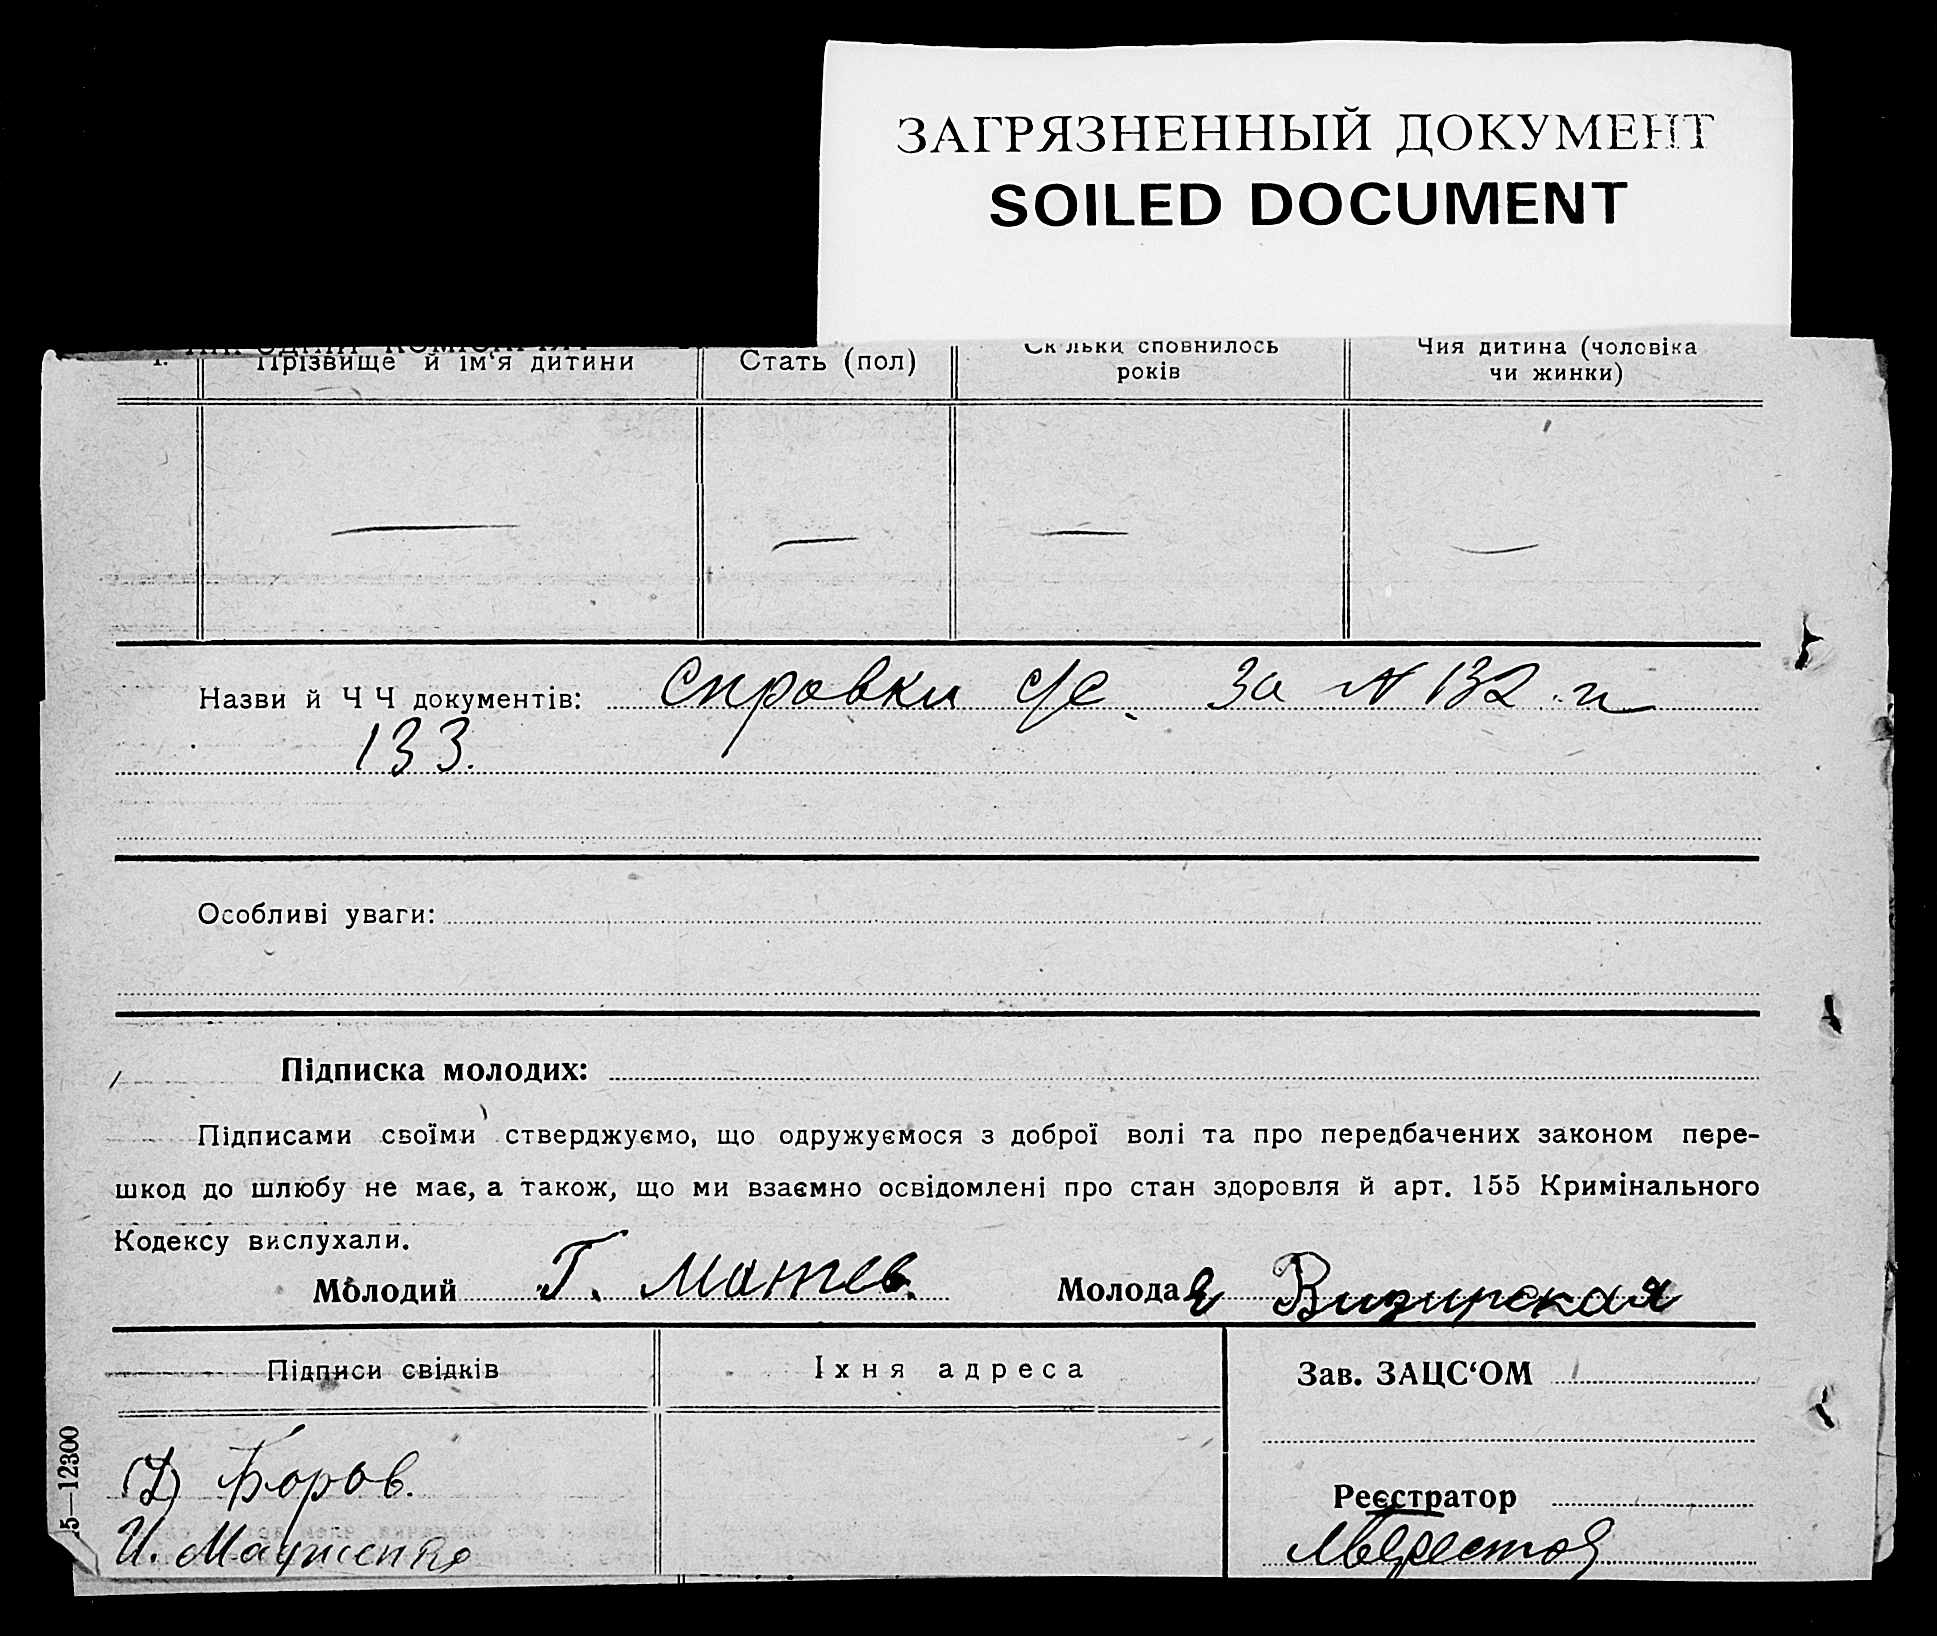 ЗАГРЯЗНЕННЫЙ ДОКУМЕНТ
SOILED DOCUMENT
Прізвище й ім'я дитини
Стать (пол)
Скільки сповнилось
років
Чия дитина (чоловіка
чи жинки)
Назви й Ч Ч документів: Справки с/с. за N 132 и
133.
Особливі уваги:
Підписка молодих:
Підписами своїми стверджуємо, що одружуємося з доброї волі та про передбачених законом пере-
шкод до шлюбу не має, а також, що ми взаємно освідомлені про стан здоровля й арт. 155 Кримінального
Кодексу вислухали.
Молодий Г. Матев. Молода Е Визирская
Підписи свідків
Іхня адреса
Зав. ЗАЦС‘ОМ
Боров.
Реєстратор
И.
5—12300